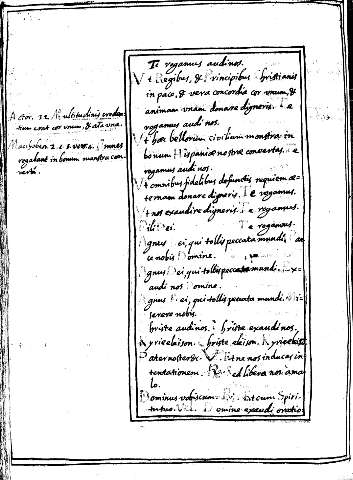 Te rogamus audi nos.
Vt Regibus, & Principibus Christianis
in pace, & vera concordia cor vnum, &
animam vnam donare digneris. Te
rogamus audi nos.
Vt hæc bellorum ciuilium monstra in
bonum Hispaniæ nostræ conuertas. Te
rogamus audi nos.
Vt omnibus fidelibus defunctis requiem æ-
ternam donare digneris. Te rogamus.
Vt nos exaudire digneris. Te rogamus.
Fili Dei. Te rogamus.
Agnus Dei, qui tollis peccata mundi. Par
ce nobis Domine.
Agnus Dei, qui tollis peccata mundi. Ex-
audi nos Domine.
Agnus Dei, qui tollis peccata mundi. Mi-
serere nobis.
Christe audi nos. Christe exaudi nos.
Kyrie eleison. Christe eleison. Kyrie eleison
Pater noster &c. V. Et ne nos inducas in
tentationem. R. Sed libera nos à ma-
lo.
Dominus vobiscum. R. Et cum Spiri-
tu tuo. Domine exaudi oratio
Actor. Multitudinis creden-
tium erat cor vnum, & aīa vna.
omnes
in bonum con-